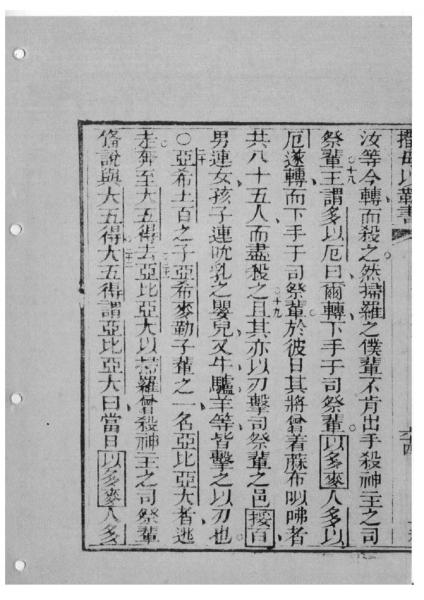 撒母以勒書
汝等今轉而殺之然掃羅之僕輩不肯出手殺神主之司
祭輩○十八王謂多以厄曰爾轉下手于司祭輩以多麥人多以
厄遂轉而下手于司祭輩於彼日其將曾着蔴布㕥咈者
共八十五人而盡殺之○十九且其亦以刃擊司祭輩之邑挼百
男連女孩子連吮乳之嬰兒又牛驢羊等皆擊之以刃也
○二十亞希土百之子亞希麥勒子輩之一名亞比亞大者逃
走奔至大五得去○二一亞比亞大以掃羅曾殺神主之司祭輩
俻說與大五得○二二大五得謂亞比亞大曰當日以多麥人多